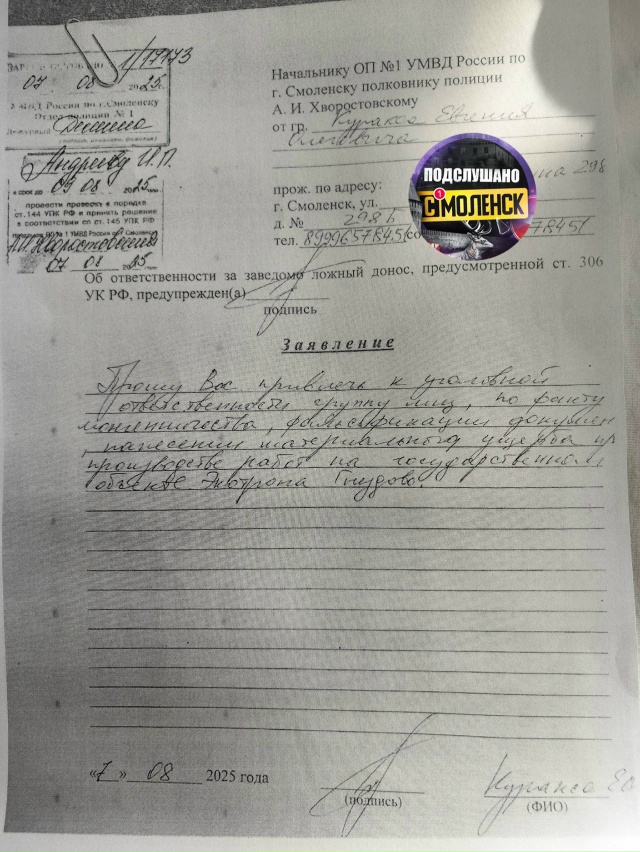 1/19173
07 08 2025.
УМВД России по г. Смоленску
Отдел полиции № 1
Дежурный
Андрееву И.П.
в срок до 09 08 2025.
провести проверку в порядке
ст. 144 УПК РФ и принять решение
в соответствии со ст. 145 УПК РФ
А.И. Хворостовский
07 08 2025
Начальнику ОП №1 УМВД России по
г. Смоленску полковнику полиции
А. И. Хворостовскому
от гр. Куракса Евгения
Олеговича
298
прож. по адресу:
г. Смоленск, ул.
д. № 298 Б
тел. 89996578451
78451
ПОДСЛУШАНО
1
СМОЛЕНСК
Об ответственности за заведомо ложный донос, предусмотренной ст. 306
УК РФ, предупрежден(а)
подпись
Заявление
Прошу Вас привлечь к уголовной
ответственности группу лиц, по факту
мошенничества, фальсификации докумен
, нанесении материального ущерба пр
производстве работ на государственном
объекте Экотропа Гнездово.
«7» 08 2025 года
(подпись)
Куракса ЕО
(ФИО)